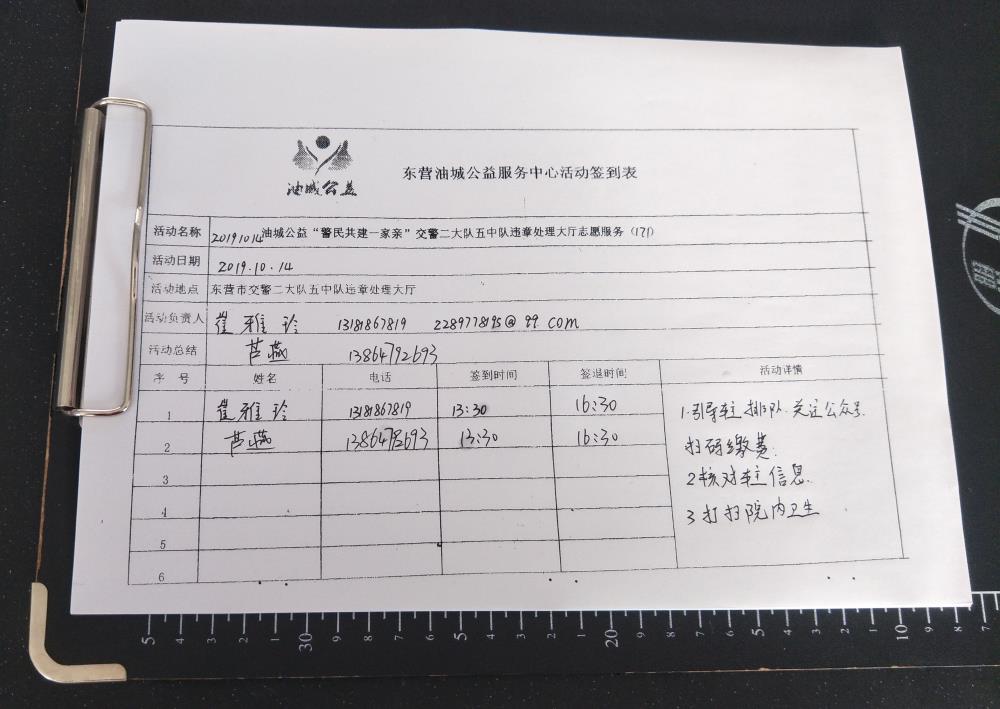 油城公益
东营油城公益服务中心活动签到表
活动名称 20191014油城公益“警民共建一家亲”交警二大队五中队违章处理大厅志愿服务（171）
活动日期 2019.10.14
活动地点 东营市交警二大队五中队违章处理大厅
活动负责人 崔雅玲 13181867819 228977819S@qq.com
活动总结 芦燕 13864792693
序号 姓名 电话 签到时间 签退时间 活动详情
1 崔雅玲 13181867819 13:30 16:30 1.引导车主排队.关注公众号.
2 芦燕 13:30 16:30 扫码缴费.
3 2核对车主信息.
4 3打扫院内卫生
5
6
5 4 3 2 1 30 9 8 7 6 5 4 3 2 1 20 9 8 7 6 5 4 3 2 1 10 9 8 7